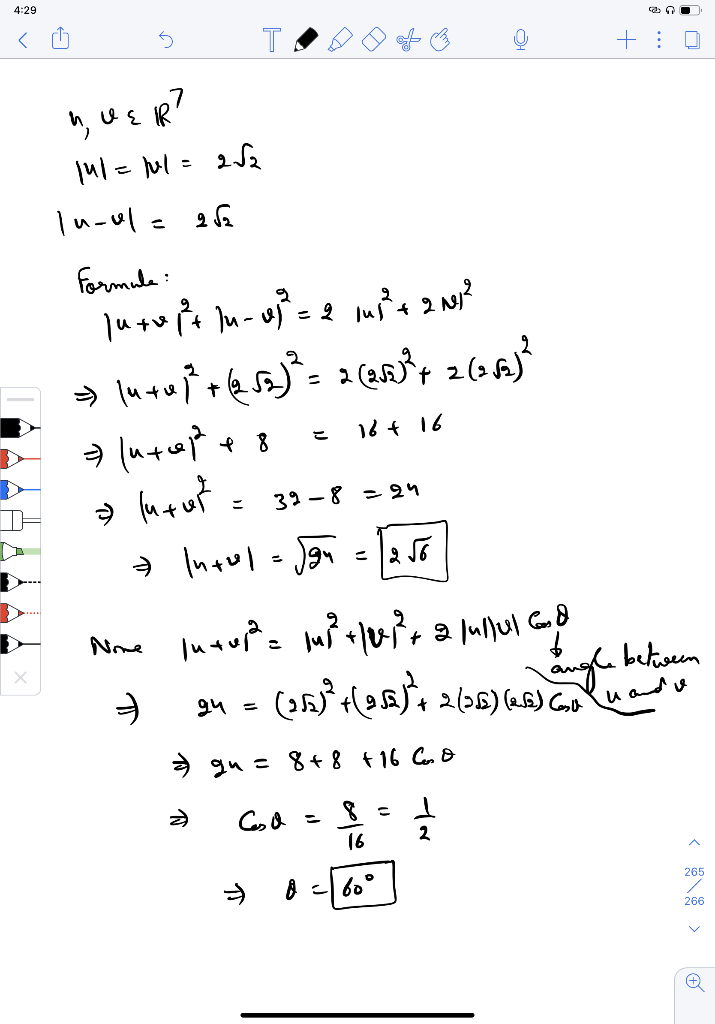 4:29
T
u, v ε ℝ⁷
|u| = |v| = 2√2
|u-v| = 2√2
Formula:
|u+v|² + |u-v|² = 2 |u|² + 2 |v|²
⇒ |u+v|² + (2√2)² = 2(2√2)² + 2(2√2)²
⇒ |u+v|² + 8 = 16 + 16
⇒ |u+v|² = 32 - 8 = 24
⇒ |u+v| = √24 = 2√6
|u+v|² = |u|² + |v|² + 2 |u||v| Cos θ
↓
angle between
u and v
⇒ 24 = (2√2)² + (2√2)² + 2(2√2)(2√2) Cos θ
⇒ 24 = 8 + 8 + 16 Cos θ
⇒ Cos θ = 8/16 = 1/2
⇒ θ = 60°
265
266